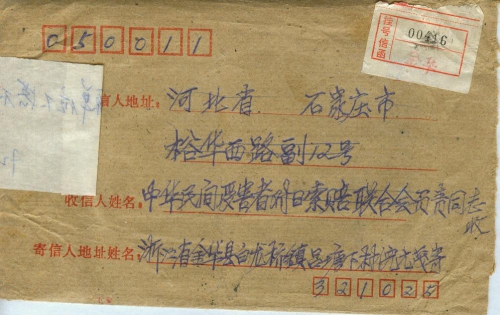 050011
挂号信函
00416
金华
收信人地址: 河北省 石家庄市
裕华西路副12号
收信人姓名: 中华民间受害者对日索赔联合会负责同志
收
寄信人地址姓名: 浙江省金华县白龙桥镇吕塘下村
321025